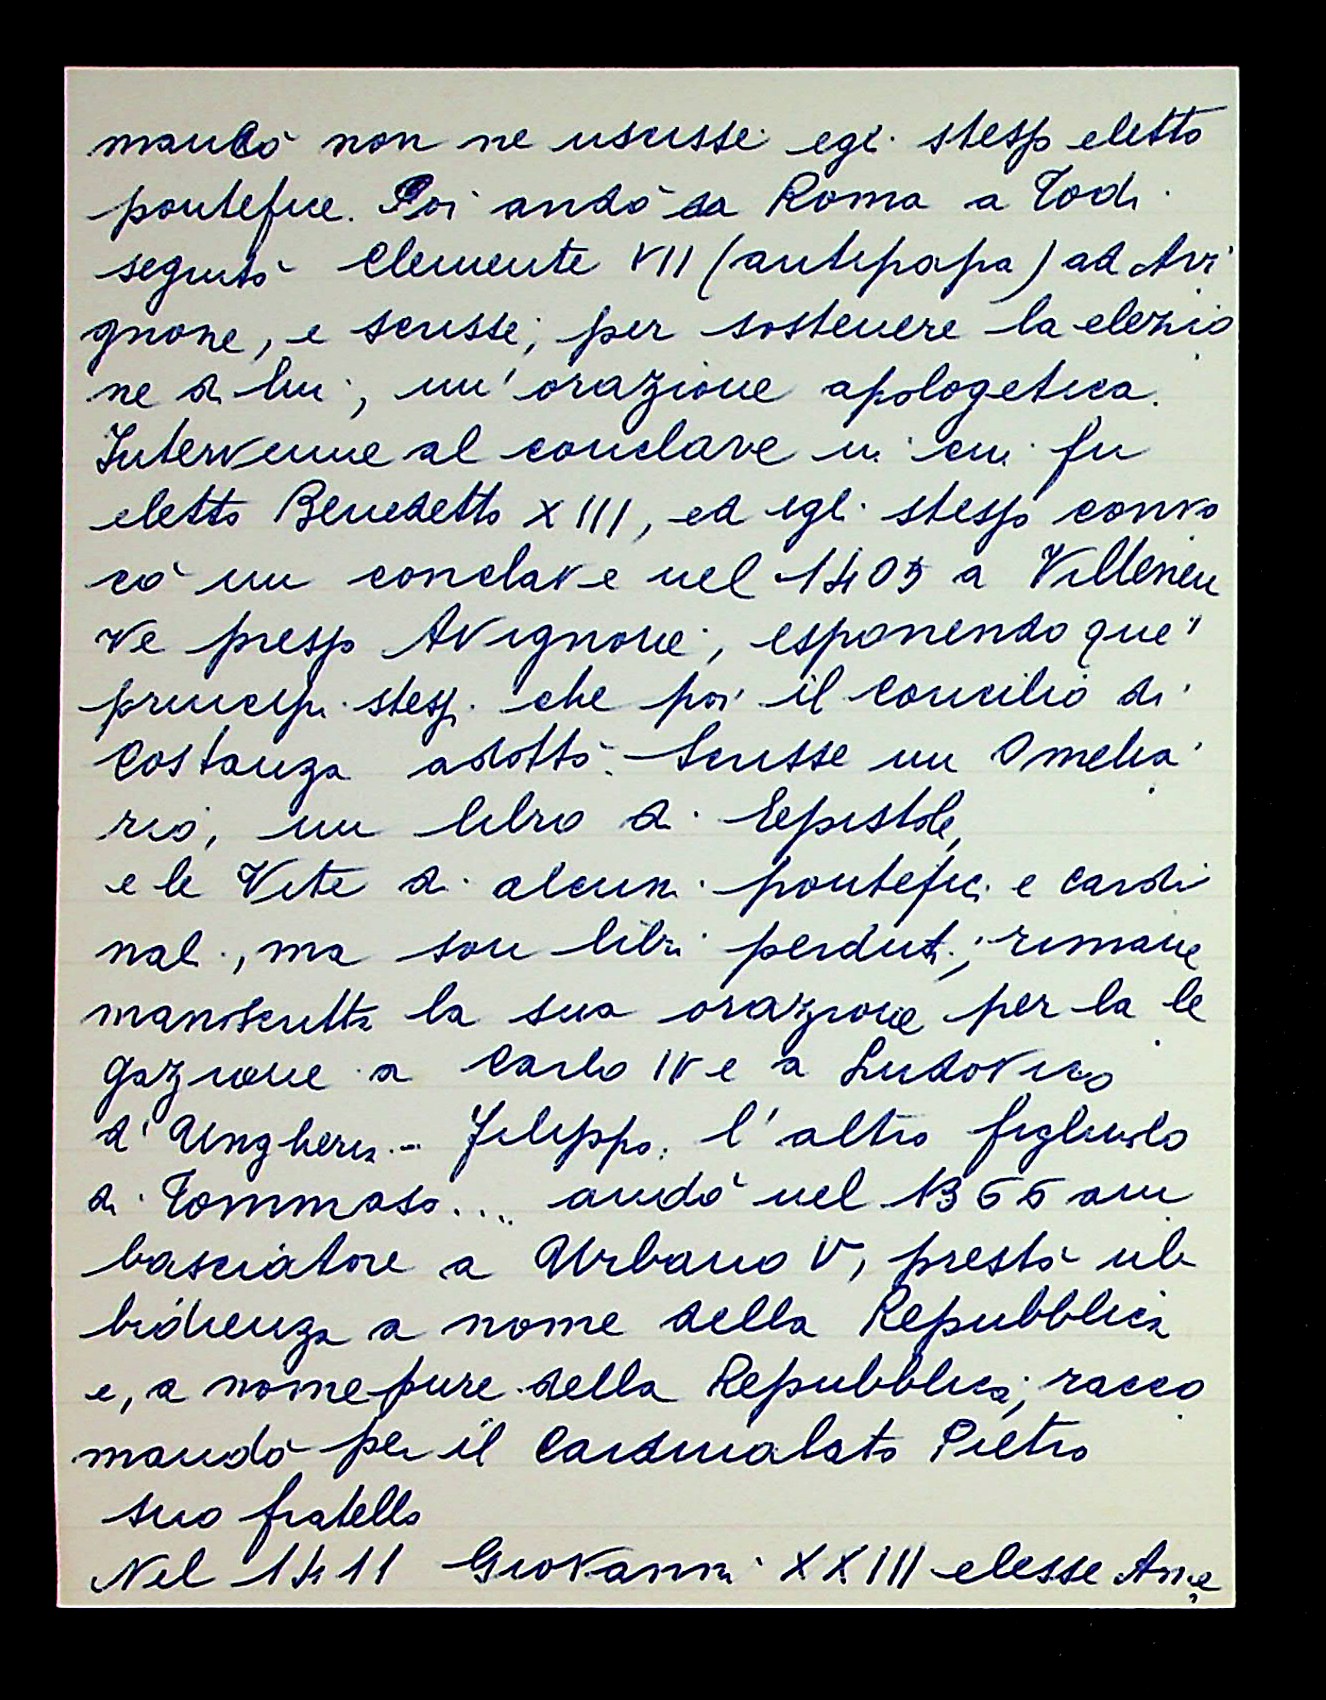 mancò non ne uscisse egli stesso eletto
pontefice. Poi andò da Roma a Todi
seguitò Clemente VII (antipapa) ad Avi
gnone, e scrisse, per sostenere la elezio
ne di lui, un' orazione apologetica.
Intervenne al conclave in cui fu
eletto Benedetto XIII, ed egli stesso convo
cò un conclave nel 1405 a Villeneu
ve presso Avignone, esponendo que'
principi stessi che poi il Concilio di
Costanza adottò. Scrisse un Omelia
rio, un libro di Epistole,
e le Vite di alcuni pontefici e cardi
nali, ma son libri perduti; rimane
manoscritta la sua orazione per la le
gazione a Carlo IV e a Ludovico
d' Ungheria - Filippo, l' altro figliuolo
di Tommaso.... andò nel 1366 am
basciatore a Urbano V, prestò ub
bidienza a nome della Repubblica
e, a nome pure della Repubblica, racco
mandò per il Cardinalato Pietro
suo fratello
Nel 1411 Giovanni XXIII elesse Ame